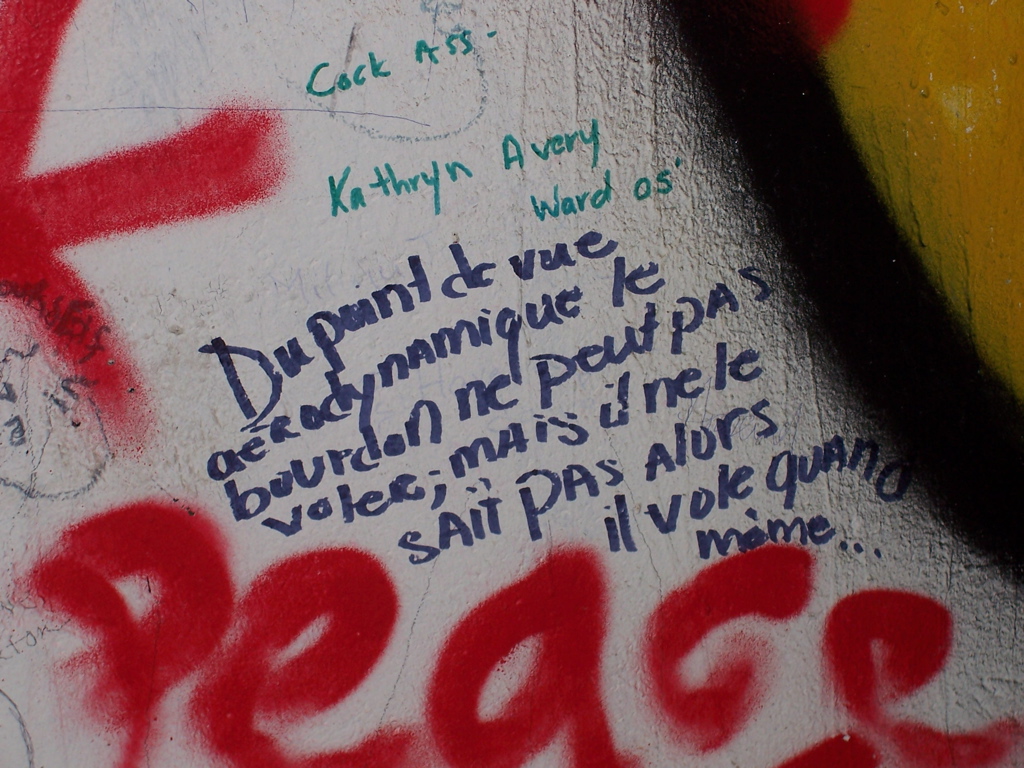 Cock Ass-
Kathryn Avery
Ward 05'
Du point de vue
aérodynamique le
bourdon ne peut pas
voler; mais il ne le
sait pas alors
il vole quand
même...
Peace